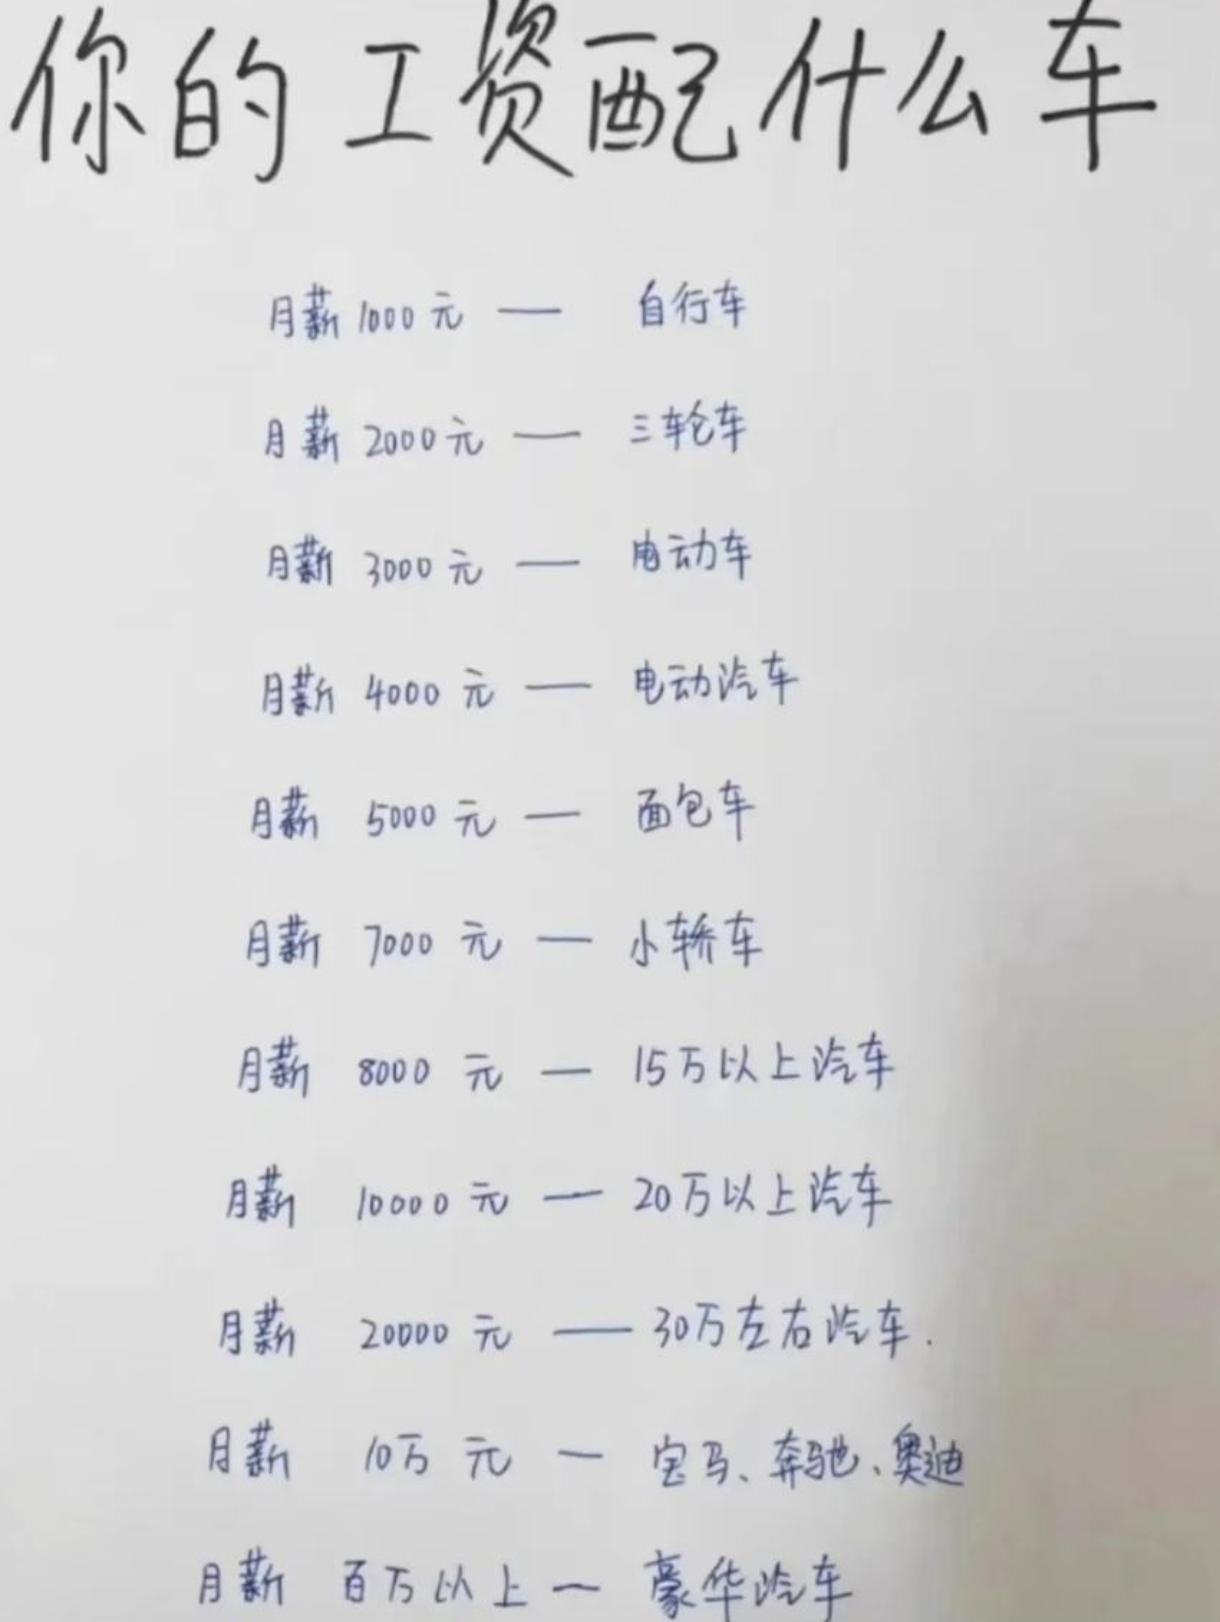 你的工资配什么车
月薪1000元 — 自行车
月薪2000元 — 三轮车
月薪3000元 — 电动车
月薪4000元 — 电动汽车
月薪5000元 — 面包车
月薪7000元 — 小轿车
月薪8000元 — 15万以上汽车
月薪10000元 — 20万以上汽车
月薪20000元 — 30万左右汽车.
月薪10万元 — 宝马、奔驰、奥迪
月薪百万以上 — 豪华汽车